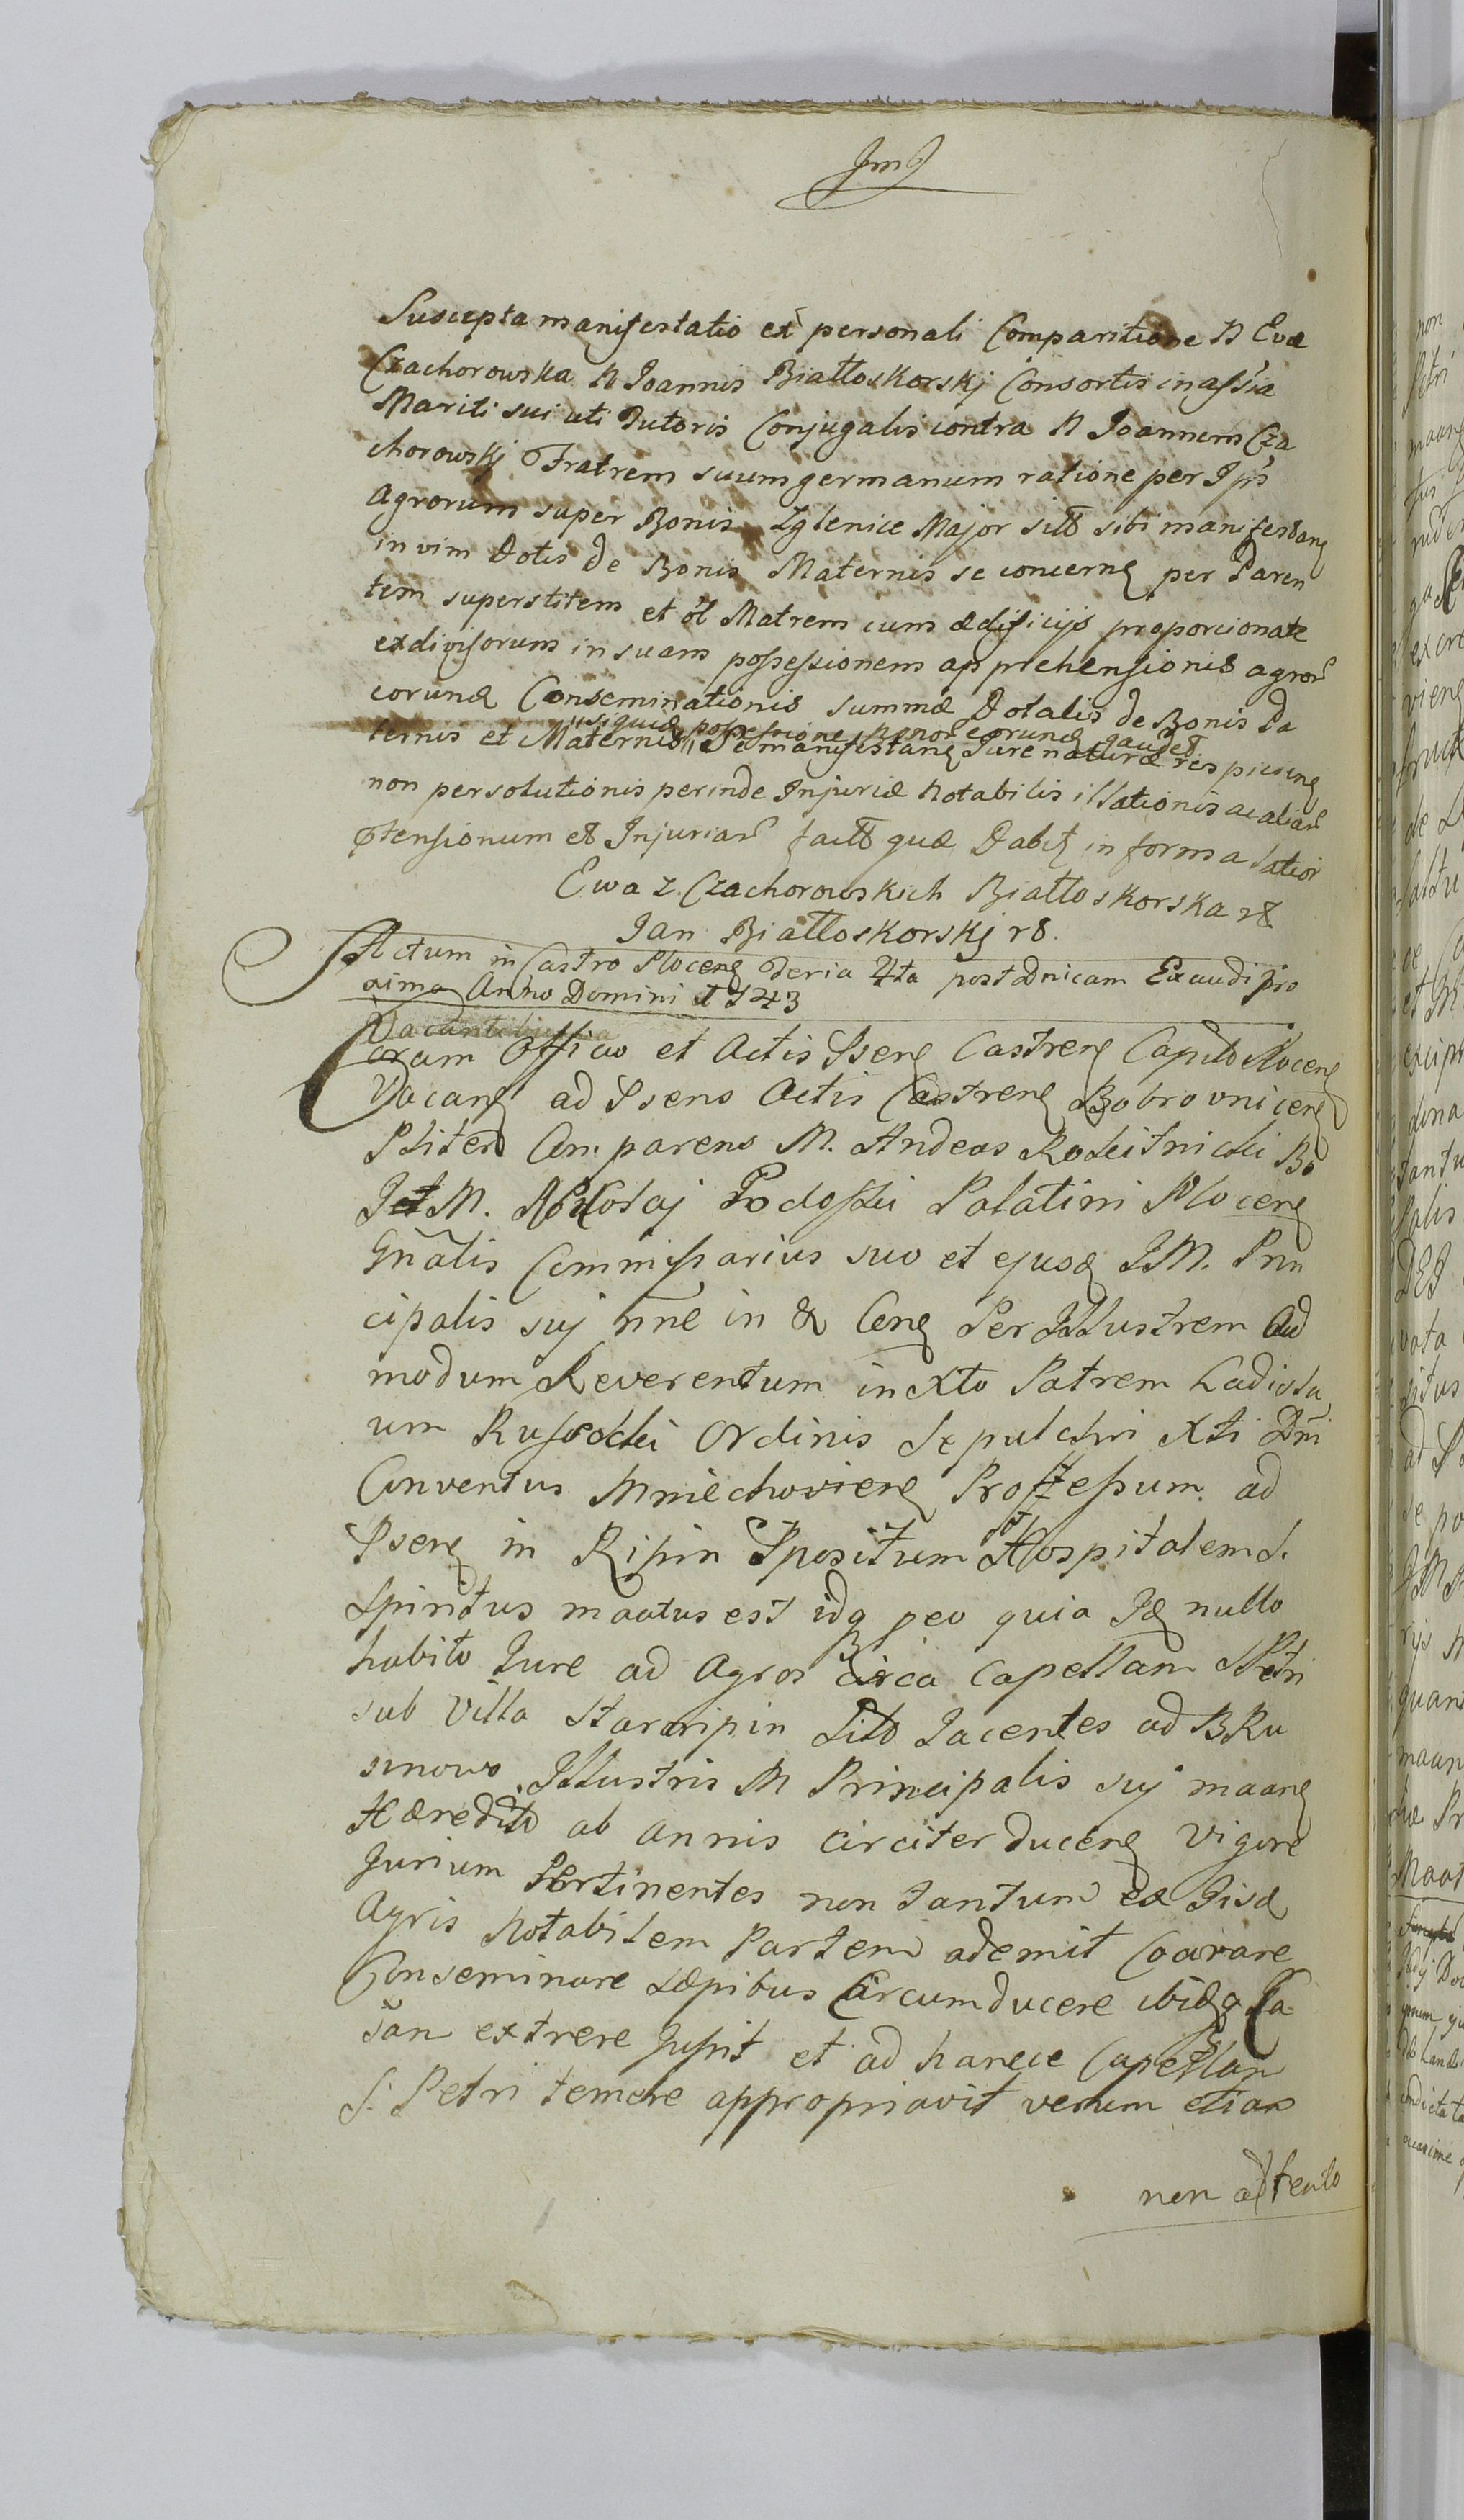 Suscepta manifestatio ex personali Comparitione N Evæ
Czachorowska N Joannis Białłoskorskj Consortis in assia
Mariti sui uti Tutoris Conjugalis contra N Joannem Cza
chorowskj Fratrem suum germanum ratione per Ipm
Agrorum super Bonis Zglenice Major sitt sibi manifestang
in vim Dotis de Bonis Maternis se concerng per Paren
tem superstitem et ol Matrem cum ædificijs proporcionate
exdivisorum in suam possessionem apprehensionis agror
eorund Conseminationis summæ Dotalis de Bonis Pa
usiquæ possessione honor eorund gaudet
ternis et Maternis, Se manifestang Jure naturæ respicieng
non persolutionis perinde Injuriæ Notabilis illationis ac aliar
prtensionum et Injuriar factt quæ Dabit in forma latior
Ewa z Czachorowskich Białłoskorska rs.
Jan Białłoskorskj rs.
Actum in Castro Ploceng Feria 4ta post Dnicam Exaudi Pro
xima Anno Domini 1743
Coram Officio et Actis Pseng Castreng Capitt Ploceng
Vacang ad Psens Actis Castreng Bobrowniceng
Pliter Comparens M. Andeas Rokitnicki
I M. Mikołaj Podoski Palatini Ploceng
Gnalis Commissarius suo et ejusd IM. Prin
cipalis suj nne in & Cong Per Illustrem Ad
modum Reverentum in Xto Patrem Ladisla
um Ordinis Sepulchri Xti Dni
Conventus Mniechovieng Professum ad
Pseng in Ripin Ppositum Hospitalem S.
Spiritus maatus est idq peo quia Id nullo
habito Jure ad Agros circa Capellam S Petri
sub Villa Stararipin Sitt Jacentes ad B Ru
sinowo Illustris M Principalis suj maang
Hæreditt ab annis circiter duceng Vigore
Jurium Pertinentes non tantum ex Iisd
Agris Notabilem Partem ademit Coarare
Conseminare sæpibus Circumducere ibidq Ca
san extrere Jussit et ad hancce Capellam
S. Petri temere appropriavit verum etiam
non attento